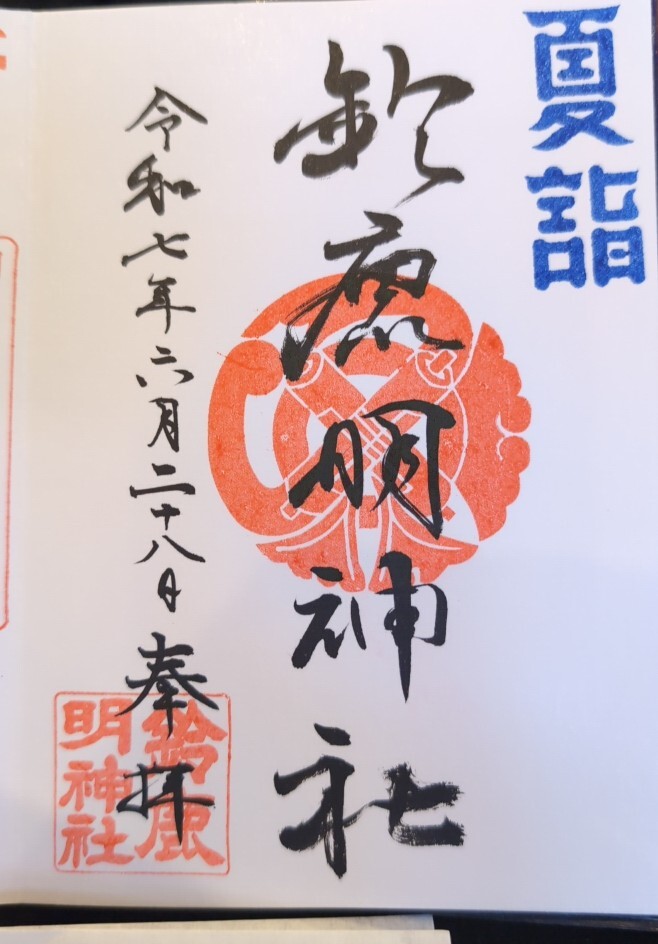 夏詣
鈴鹿明神社
令和七年六月二十八日 奉拝
鈴鹿
明神社